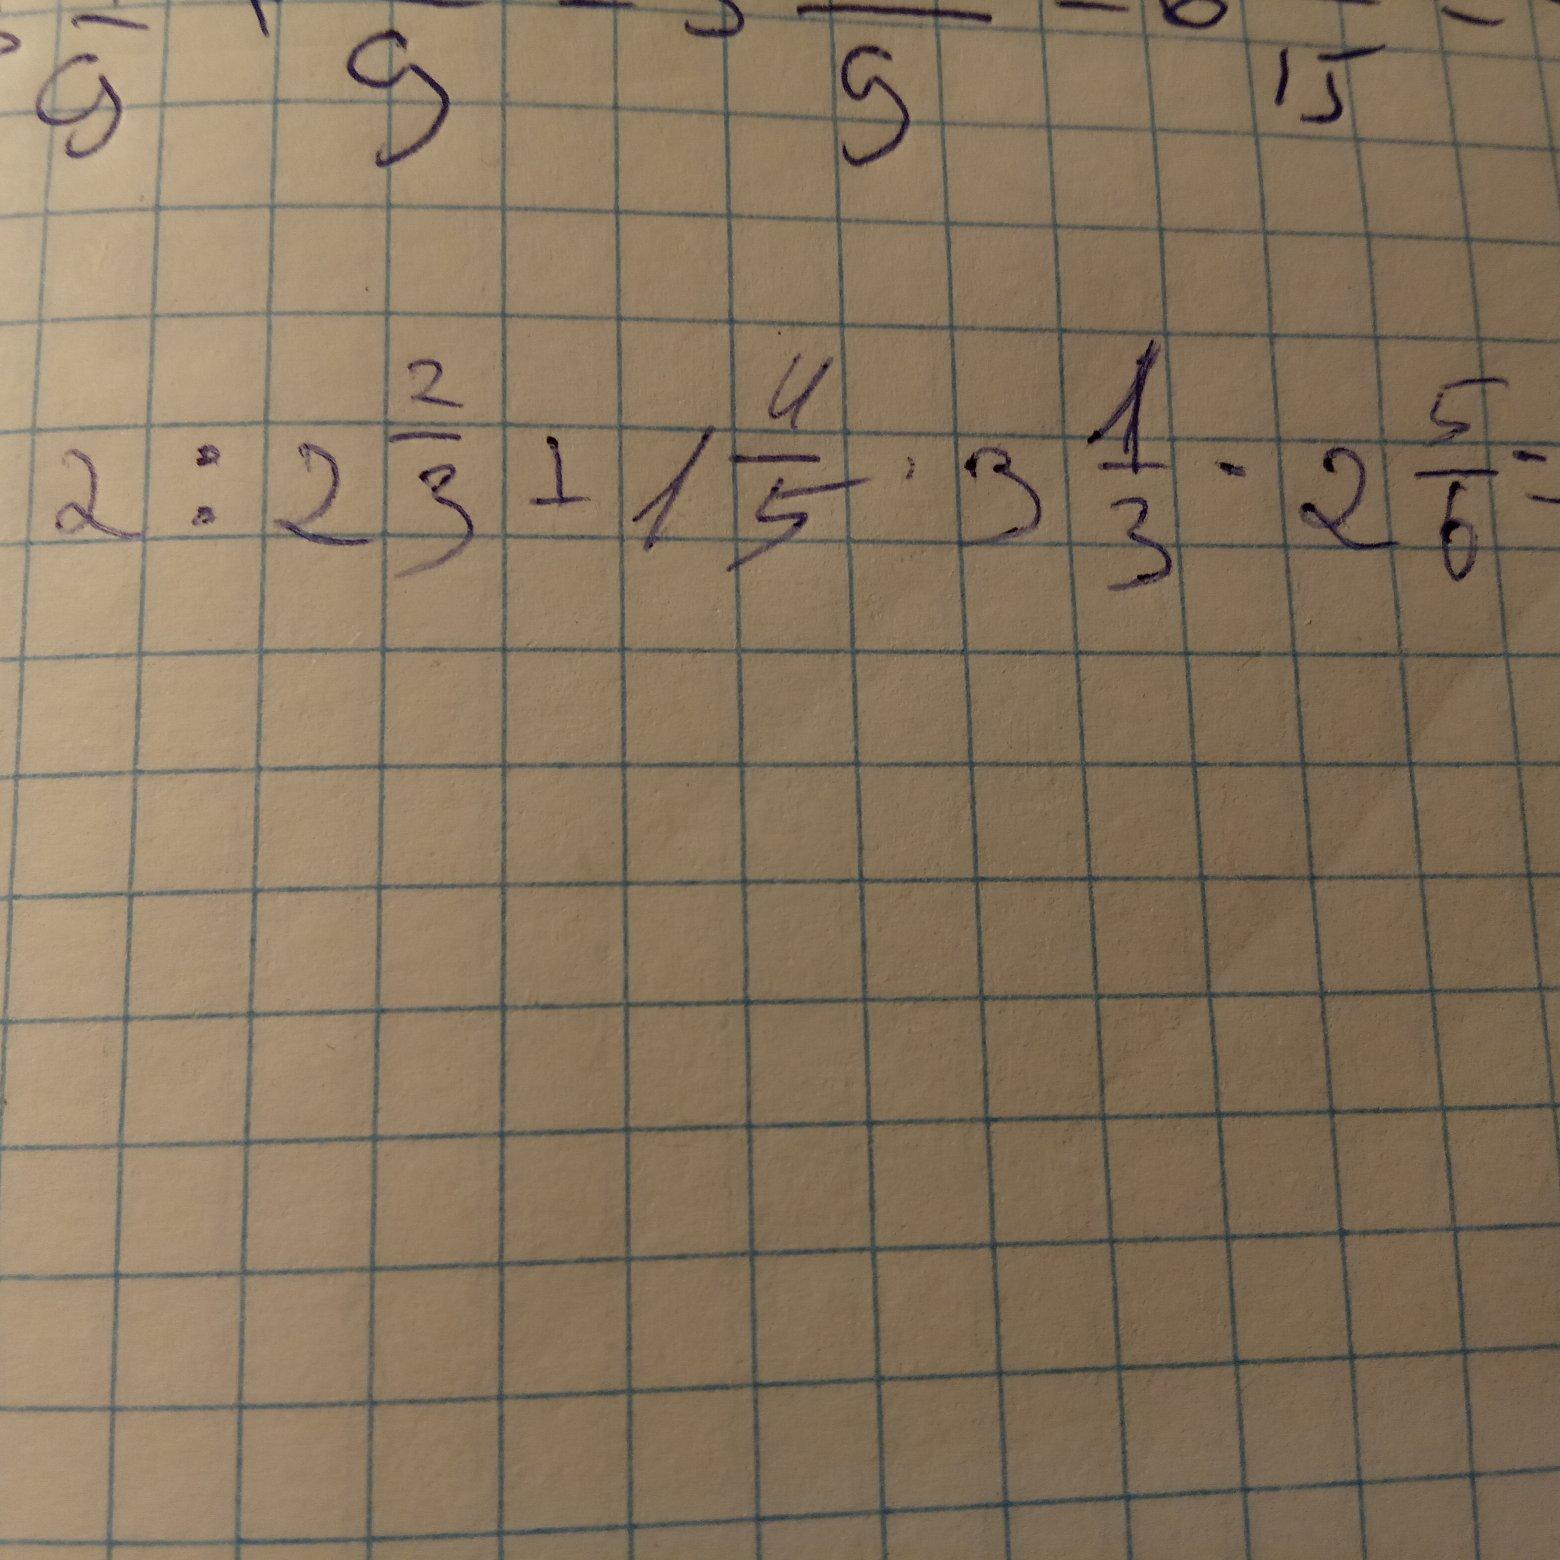 9 9 9 15
2 : 2 2/3 + 1 4/5 · 3 1/3 - 2 5/6 =